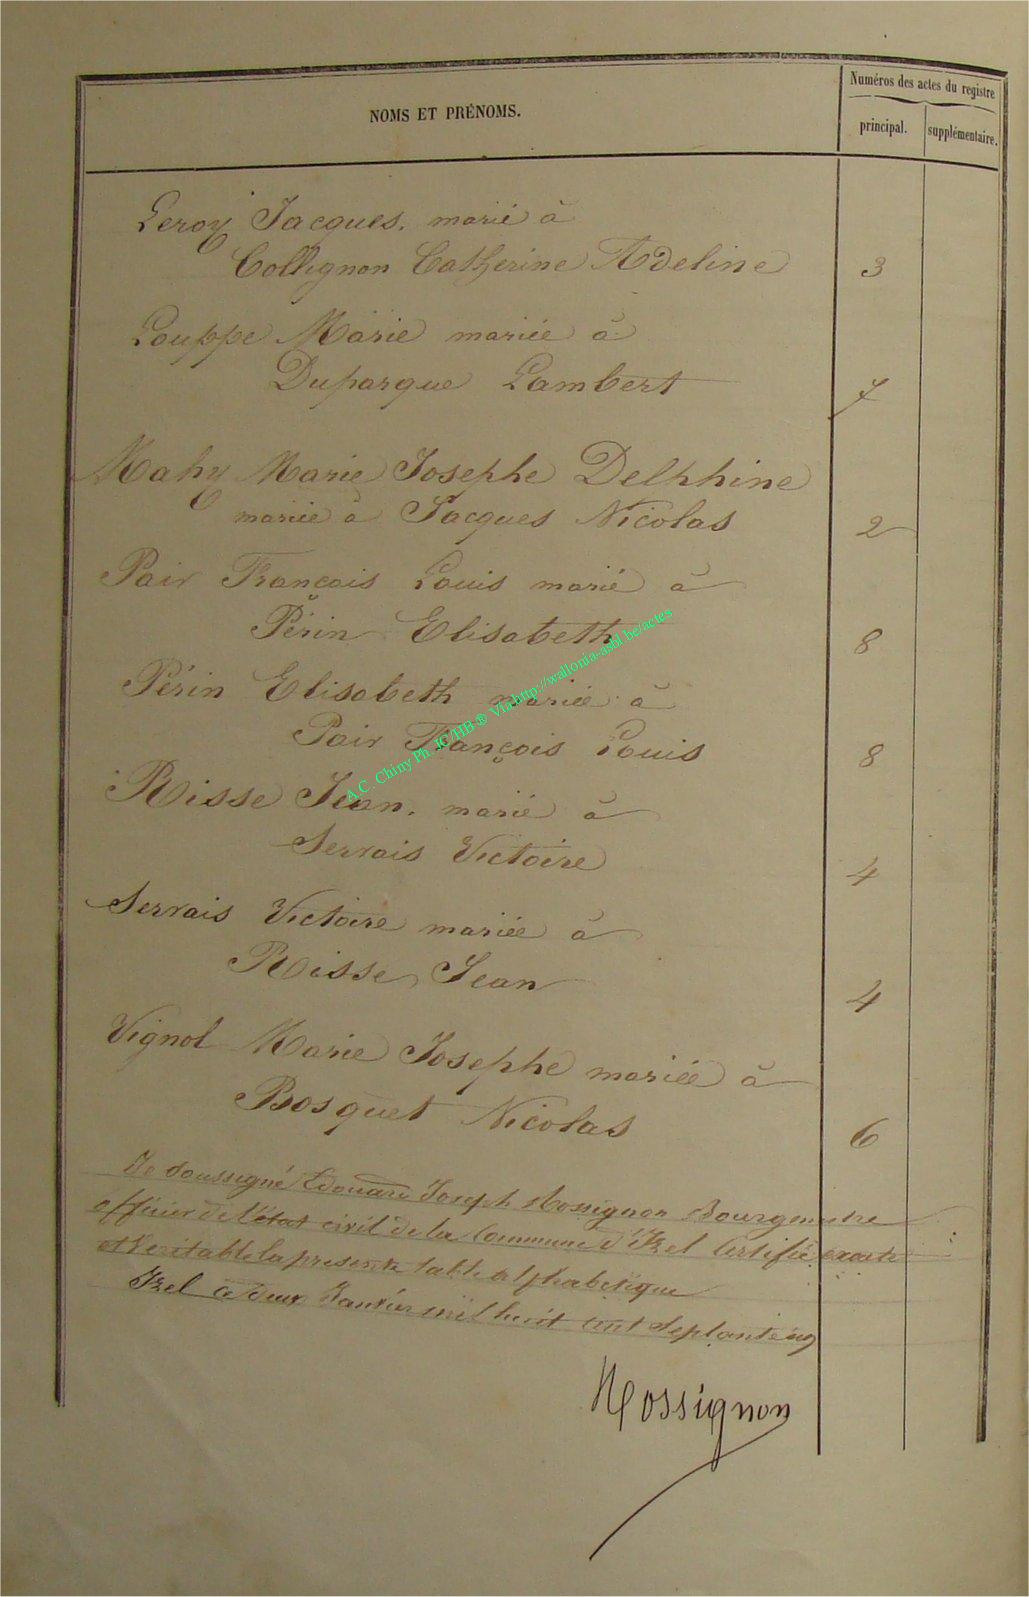 NOMS ET PRÉNOMS.
Numéros des actes du registre
principal.
supplémentaire.
Leroy Jacques. marié à
Collignon Catherine Adeline 3
Louppe Marie mariée à
Duparque Lambert 7
Mahy Marie Josephe Delphine
mariée à Jacques Nicolas 2
Pair François Louis marié à
Périn Elisabeth 8
Périn Elisabeth mariée à
Pair François Louis 8
Risse Jean. marié à
Servais Victoire 4
Servais Victoire mariée à
Risse Jean 4
Vignol Marie Josephe mariée à
Bosquet Nicolas 6
Je soussigné Edouard Joseph Rossignon Bourgmestre
officier de l'état civil de la Commune d'Izel Certifie exacte
et veritable la presente table alphabetique
Izel ce deux Janvier mil huit cent septante
Rossignon
A.C. Chiny Ph JC/HB® Via http://wallonia-asbl.be/actes